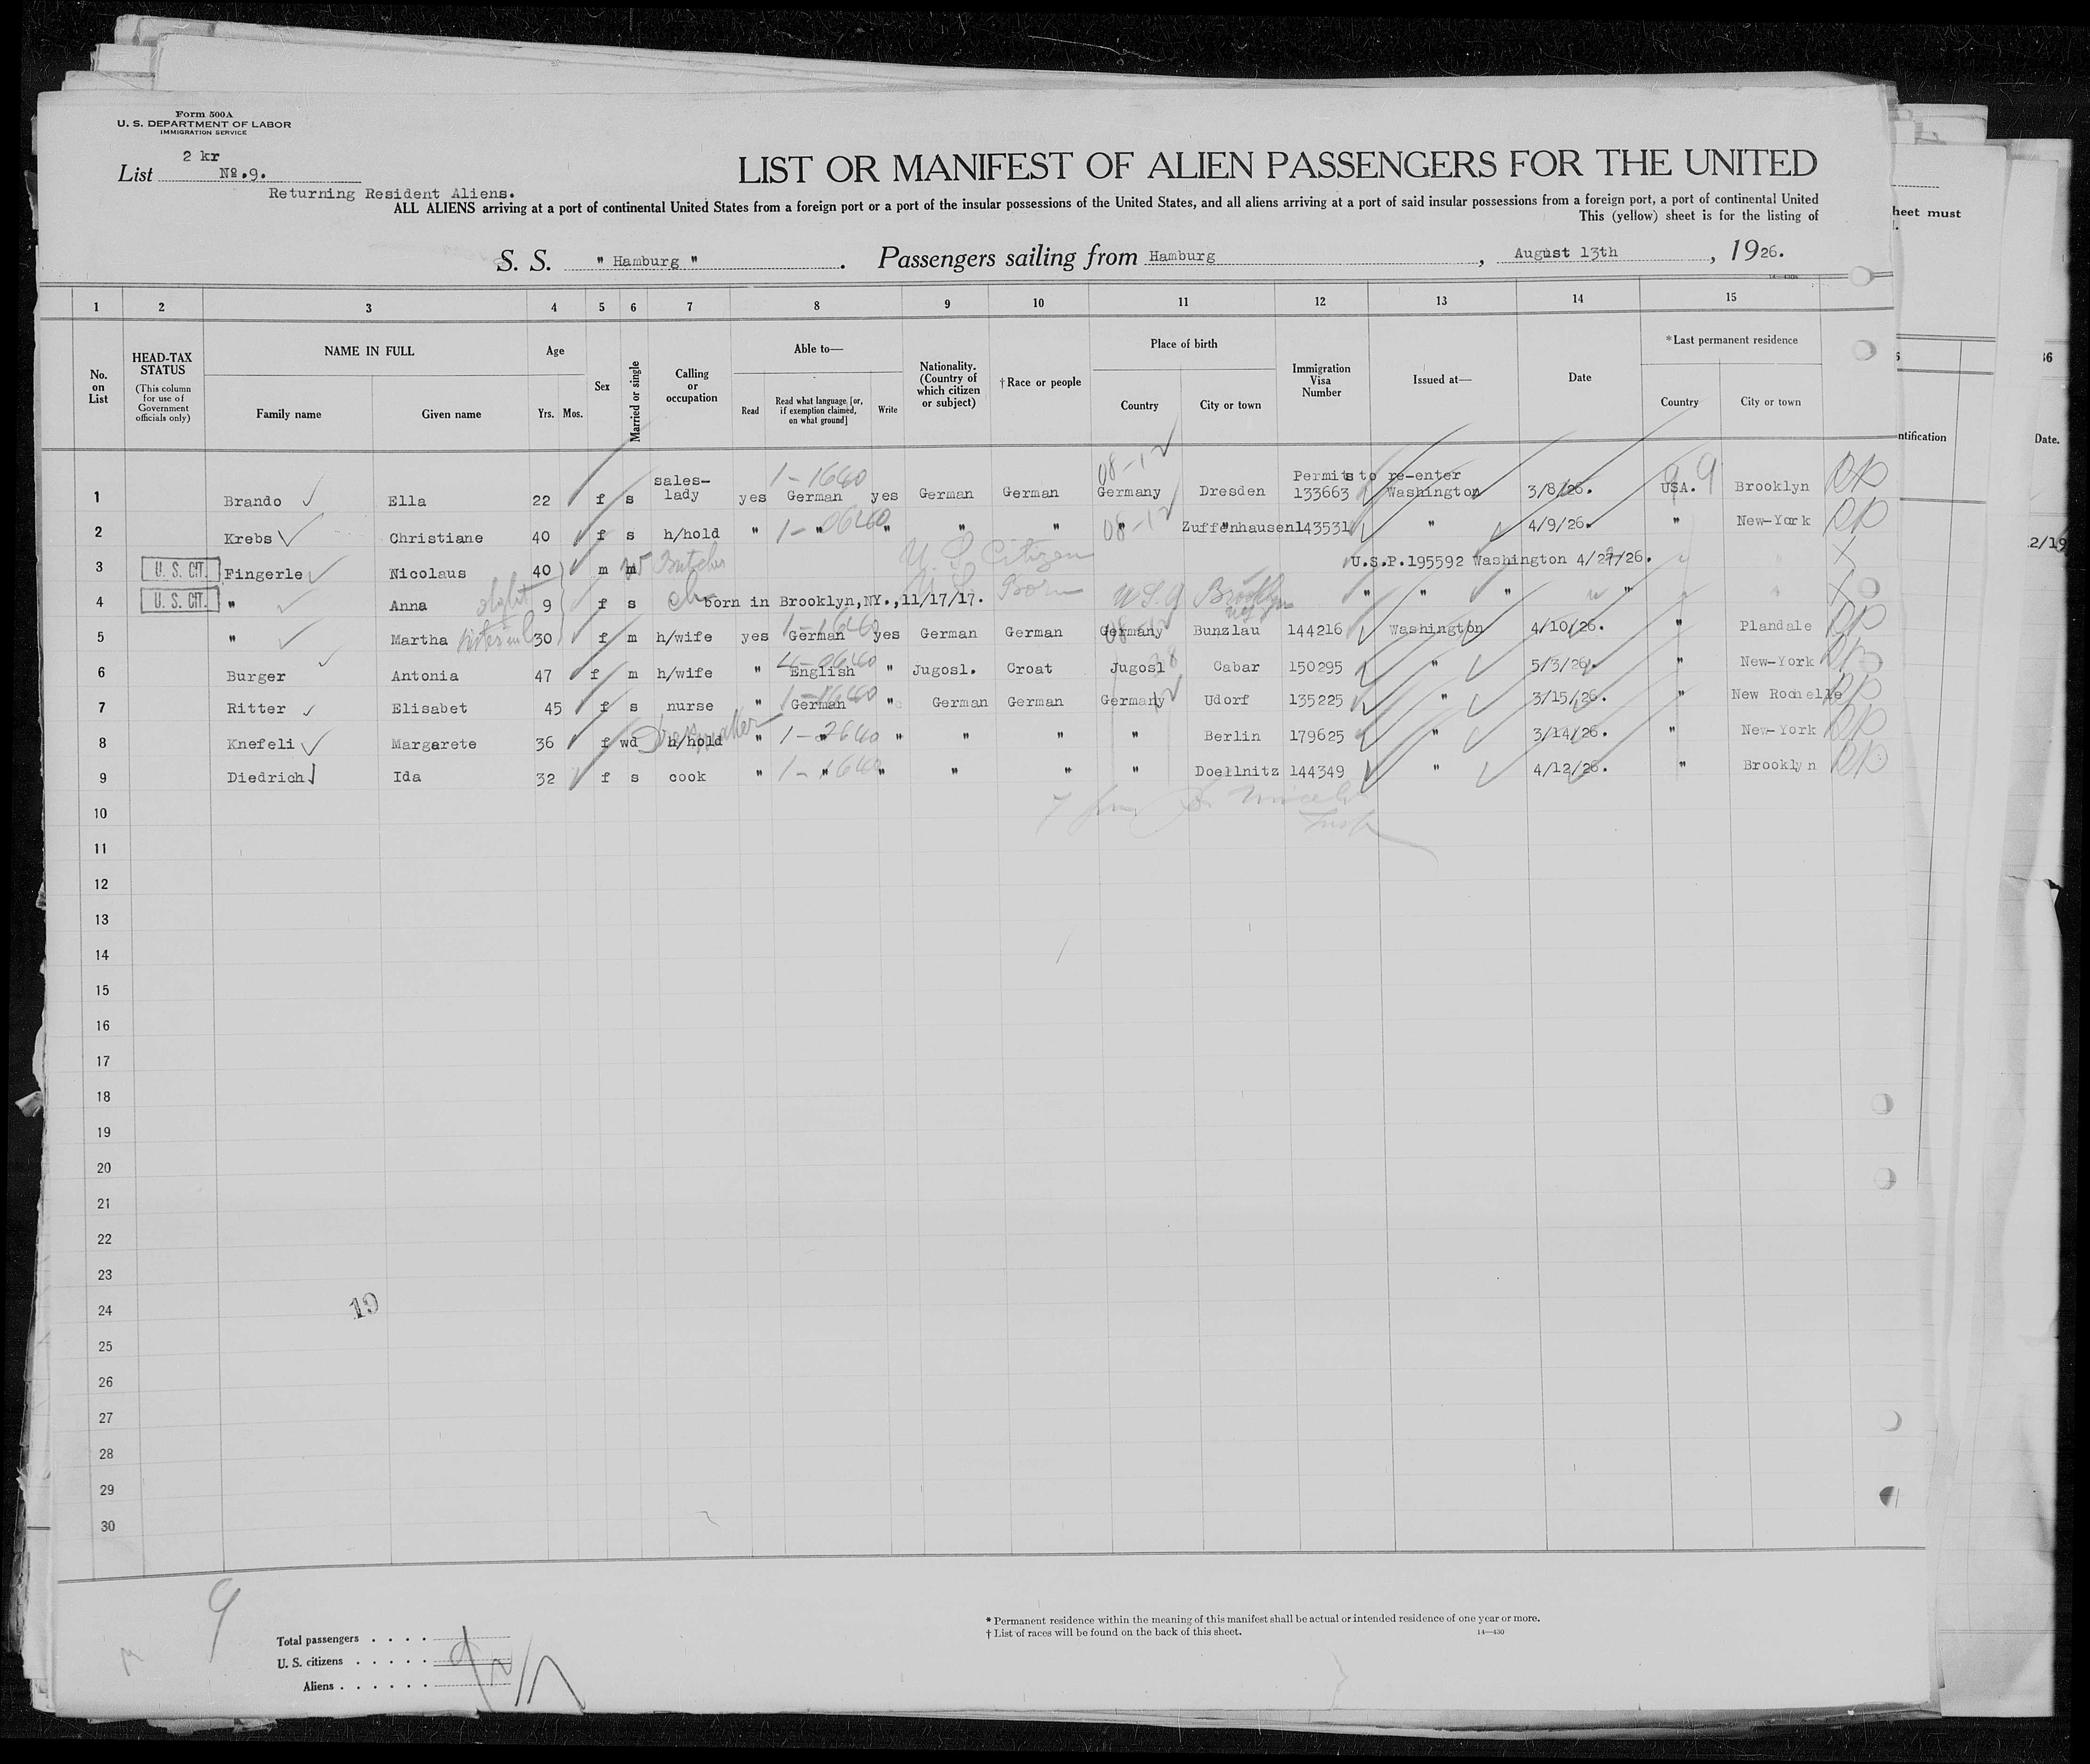 Form 500A
U. S. DEPARTMENT OF LABOR
IMMIGRATION SERVICE
2 kr
List No.9.
Returning Resident Aliens.
LIST OR MANIFEST OF ALIEN PASSENGERS FOR THE UNITED
ALL ALIENS arriving at a port of continental United States from a foreign port or a port of the insular possessions of the United States, and all aliens arriving at a port of said insular possessions from a foreign port, a port of continental United
This (yellow) sheet is for the listing of
heet must
S. S. " Hamburg " . Passengers sailing from Hamburg , August 13th , 1926.
1 2 3 4 5 6 7 8 9 10 11 12 13 14 15
No. on List
HEAD-TAX STATUS
(This column for use of Government officials only)
NAME IN FULL
Family name Given name
Age
Yrs. Mos.
Sex
Married or single
Calling or occupation
Able to—
Read
Read what language [or, if exemption claimed, on what ground]
Write
Nationality. (Country of which citizen or subject)
†Race or people
Place of birth
Country City or town
Immigration Visa Number
Issued at—
Date
*Last permanent residence
Country City or town
ntification
Date.
16
2/19
Permits to re-enter
1 Brando Ella 22 f s sales-lady yes 1-1640 German yes German German 08-12 Germany Dresden 133663 Washington 3/8/26. USA. Brooklyn
2 Krebs Christiane 40 f s h/hold " " " " " 08-12 " Zuffenhausen 143531 " 4/9/26. " New-York
3 U. S. CIT. Fingerle Nicolaus 40 m m Butcher U. S. Citizen U.S.P.195592 Washington 4/27/26.
4 U. S. CIT. " Anna 9 f s ch born in Brooklyn,NY.,11/17/17. U.S. Born USA Brooklyn NY " " " "
5 " Martha 30 f m h/wife yes German yes German German Germany Bunzlau 144216 Washington 4/10/26. " Plandale
6 Burger Antonia 47 f m h/wife " English " Jugosl. Croat Jugosl Cabar 150295 " 5/3/26. " New-York
7 Ritter Elisabet 45 f s nurse " German " German German Germany Udorf 135225 " 3/15/26. " New Rochelle
8 Knefeli Margarete 36 f wd h/hold Dressmaker " 1-2640 " " " " " Berlin 179625 " 3/14/26. " New-York
9 Diedrich Ida 32 f s cook " 1-1640 " " " " " Doellnitz 144349 " 4/12/26. " Brooklyn
10
11
12
13
14
15
16
17
18
19
20
21
22
23
24 19
25
26
27
28
29
30
9
Total passengers . . . .
U. S. citizens . . . . .
Aliens . . . . . .
* Permanent residence within the meaning of this manifest shall be actual or intended residence of one year or more.
† List of races will be found on the back of this sheet.
14—430